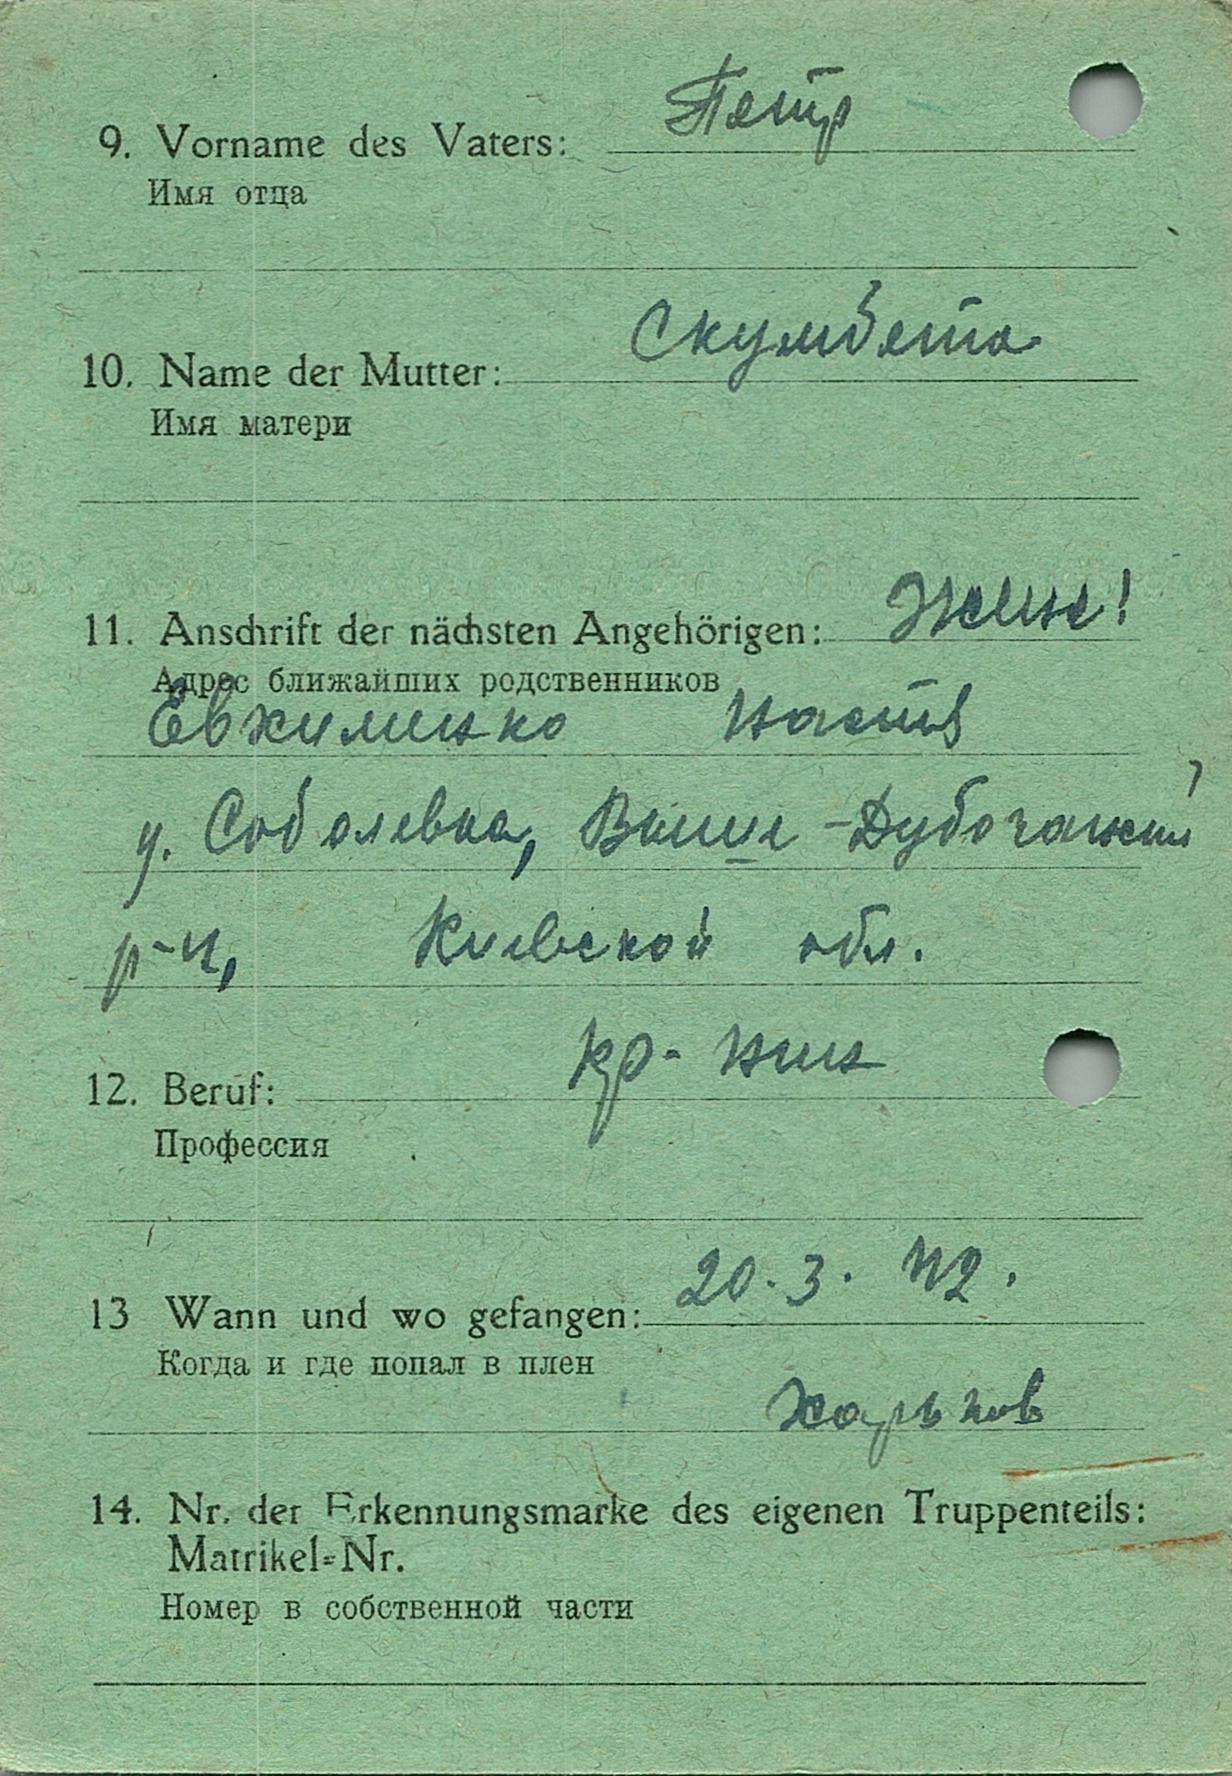 Петр
9. Vorname des Vaters:
Имя отца
Скумбета
10. Name der Mutter:
Имя матери
11. Anschrift der nächsten Angehörigen: Жене!
Адрес ближайших родственников
Евхименко Настя
у. Соболевка, Выше-Дубочанский
р-н, Киевской обл.
кр-нин
12. Beruf:
Профессия
20. 3. 42.
13 Wann und wo gefangen:
Когда и где попал в плен
Харьков
14. Nr. der Erkennungsmarke des eigenen Truppenteils:
Matrikel=Nr.
Номер в собственной части